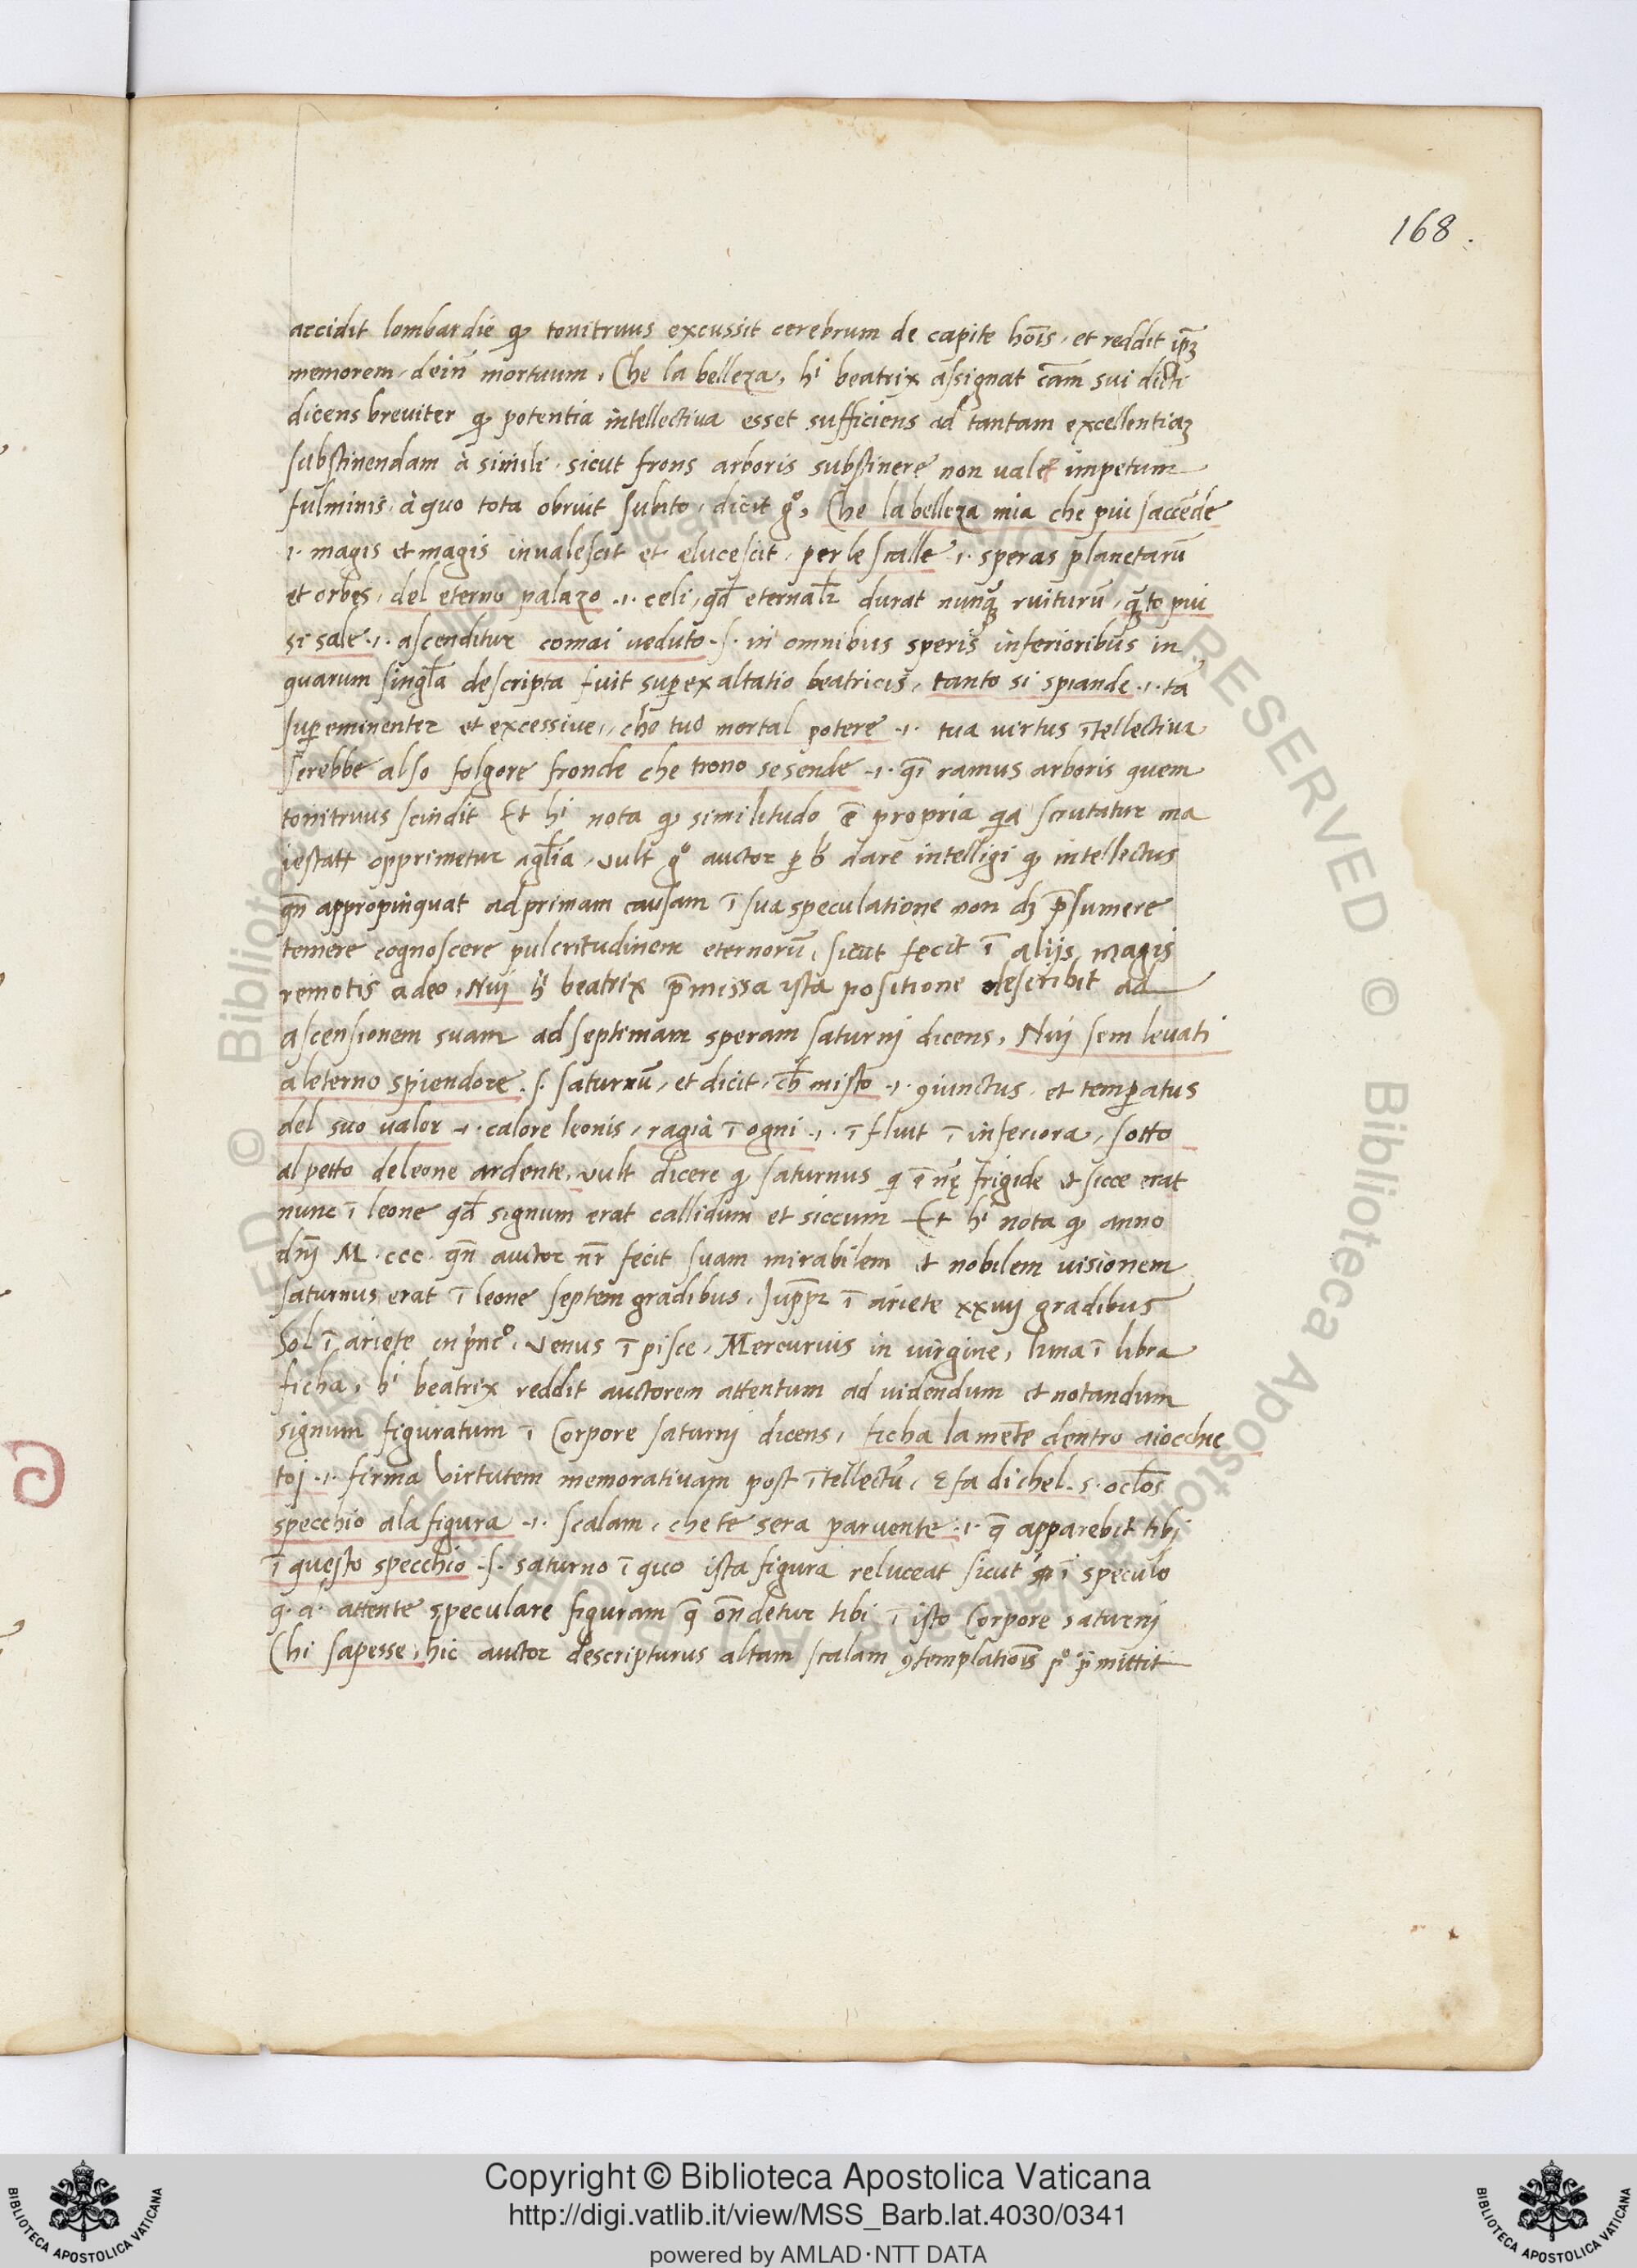 168.
accidit lombardie ꝙ tonitruus excussit cerebrum de capite hōis, et reddit ip̄ꝫ
memorem, dein̄ mortuum, Che la belleza, hⁱ beatrix assignat cām sui dicti
dicens breviter ꝙ potentia intellectiva esset sufficiens ad tantam excellentiaꝫ
substinendam à simili, sicut frons arboris substinere non valet impetum
fulminis, à quo tota obruit subito, dicit gº, Che la belleza mia che piu saccēde
.ı. magis et magis invalescit et elucescit, per le scalle .ı. speras planetarū
et orbes, del eterno palazo .ı. celi, qd̄ eternalr̄ durat nunqꝫ ruiturū, qꝫto piu
si sale .ı. ascenditur comai veduto .s. in omnibus speris inferioribus in
quarum singl̄a descripta fuit sup̄exaltatio beatricis, tanto si spiande .ı. tā
sup̄eminenter et excessive, che tuo mortal potere .ı. tua virtus ītellectiva
serebbe also folgore fronde che trono sesende .ı. qī ramus arboris quem
tonitruus scindit Et hⁱ nota ꝙ similitudo ē propria qia scrutatur ma
iestatt opprimetur agl̄ia, vult gº auctor ꝑ h̄ dare intelligi ꝙ intellectus
qn̄ appropinquat ad primam causam ī sua speculatione non dꝫ p̄sumere
temere cognoscere pulcritudinem eternorū, sicut fecit ī aliis magis
remotis adeo, Nuj hⁱ beatrix p̄missa ista positione describit ad
ascensionem suam ad septimam speram saturnj dicens, Nuj sem levati
aleterno spiendore .s. saturnū, et dicit, ch̄ misto .ı. ꝯiunctus, et temp̄atus
del suo valor .ı. calore leonis, ragia ī ogni .ı. īfluit ī inferiora, sotto
al petto deleone ardente, vult dicere ꝙ saturnus qi ē nę frigide et sicce erat
nunc ī leone qd̄ signum erat callidum et siccum Et hⁱ nota ꝙ anno
dn̄j M.ccc. qn̄ auctor nr̄ fecit suam mirabilem et nobilem visionem
saturnus erat ī leone septem gradibus, Jupp̄r ī ariete xxvij gradibus
Sol ī ariete in p̄ncº, Venus ī pisce, Mercurius in virgine, luna ī libra
ficha, hⁱ beatrix reddit auctorem attentum ad videndum et notandum
signum figuratum ī Corpore saturnj dicens, ficha la mēte dentro aiocchie
toj .ı. firma virtutem memorativam post ītellectū, E fa dichel .s. ocl̄os
specchio ala figura .ı. scalam, che te sera parvente .ı. q̄ apparebit tibj
ī questo specchio .s. saturno ī quo ista figura reluceat sicut ī speculo
q. a. attente speculare figuram q̄ on̄detur tibi ī isto Corpore saturnj
Chi sapesse, hic auctor descripturus altam scalam ꝯtemplatiōis pº p̄mittit
Copyright © Biblioteca Apostolica Vaticana
http://digi.vatlib.it/view/MSS_Barb.lat.4030/0341
powered by AMLAD·NTT DATA